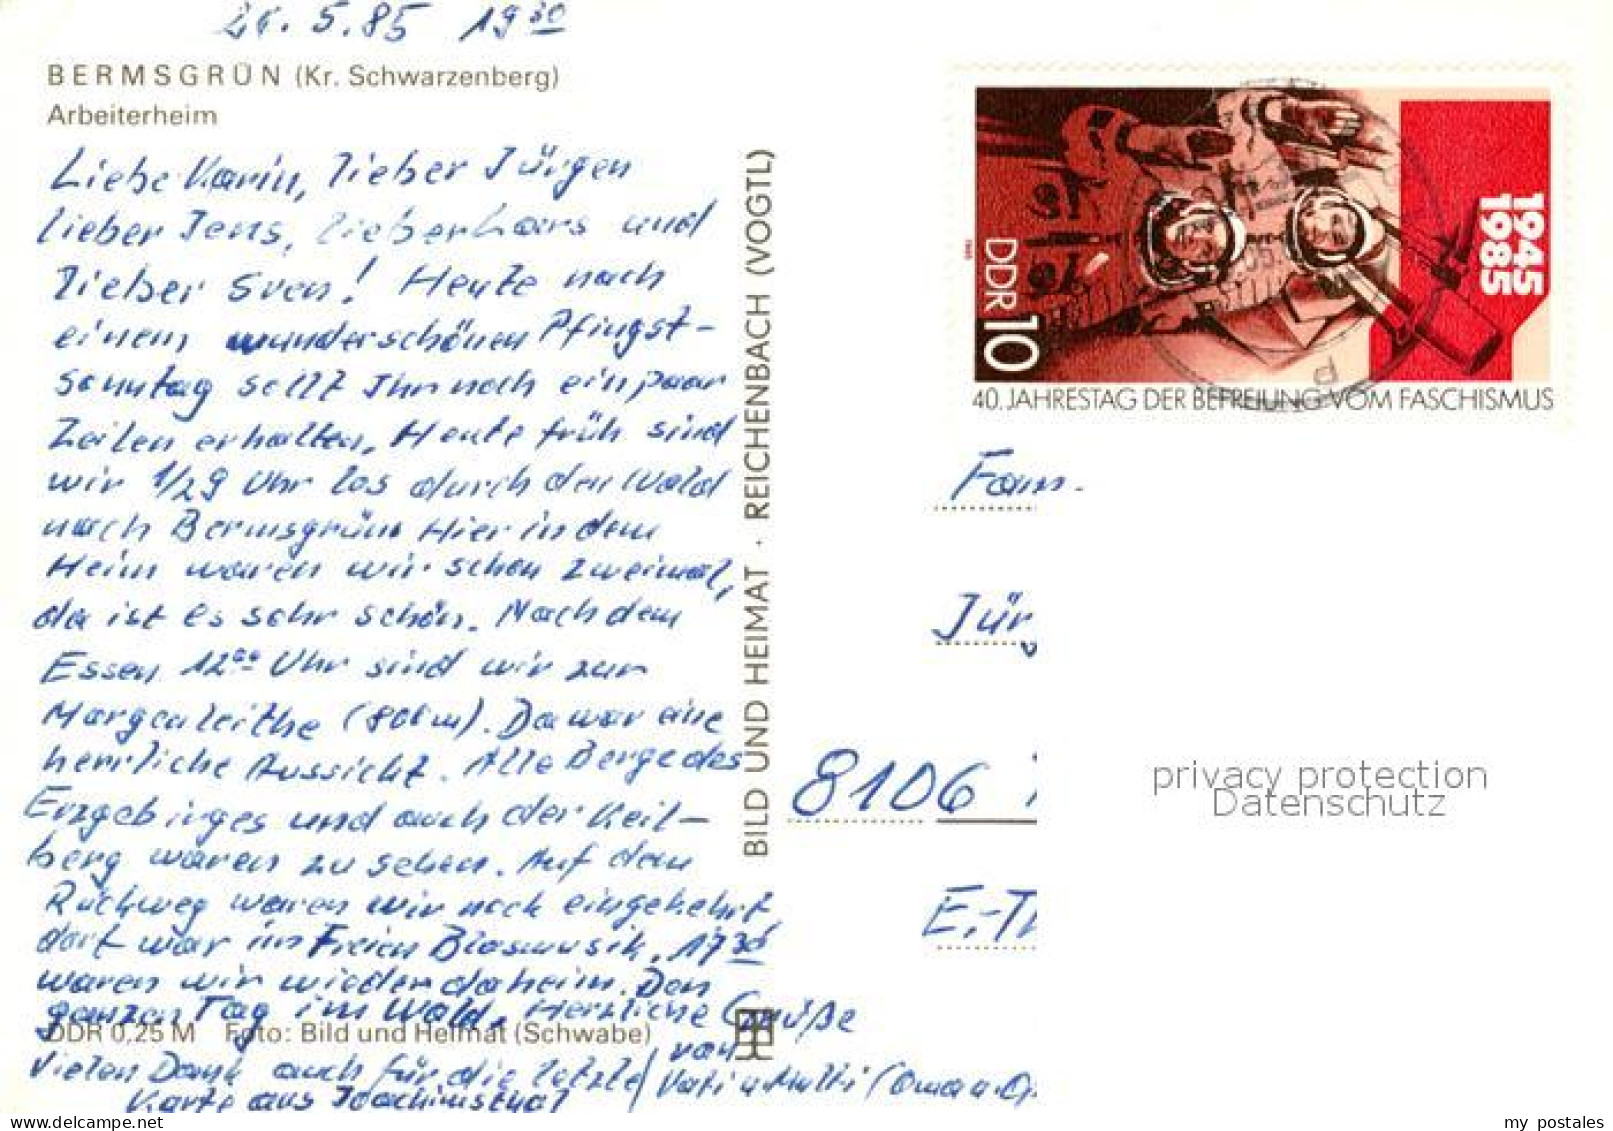 26. 5. 85 19 30
BERMSGRÜN (Kr. Schwarzenberg)
Arbeiterheim
Liebe Karin, lieber Jürgen
lieber Jens, lieber Lars und
lieber Sven! Heute nach
einem wunderschönen Pfingst-
sonntag sollt Ihr noch ein paar
Zeilen erhalten. Heute früh sind
wir 1/29 Uhr los durch den Wald
nach Bermsgrün. Hier in dem
Heim waren wir schon zweimal,
da ist es sehr schön. Nach dem
Essen 12 00 Uhr sind wir zur
Morgenleithe (806m). Da war eine
herrliche Aussicht. Alle Berge des
Erzgebirges und auch der Keil-
berg waren zu sehen. Auf dem
Rückweg waren wir noch eingekehrt
dort war im Freien Blasmusik. 17 30
waren wir wieder daheim. Den
ganzen Tag im Wald. Herzliche Grüße
DDR 0,25 M Foto: Bild und Heimat (Schwabe)
von
Vielen Dank auch für die letzte / Vati u. Mutti (Oma u. O
Karte aus Joachimsthal
BILD UND HEIMAT · REICHENBACH (VOGTL)
DDR 10
1945
1985
40. JAHRESTAG DER BEFREIUNG VOM FASCHISMUS
Fam.
Jürg
8106
E.-Th
privacy protection
Datenschutz
www.delcampe.net
my_postales